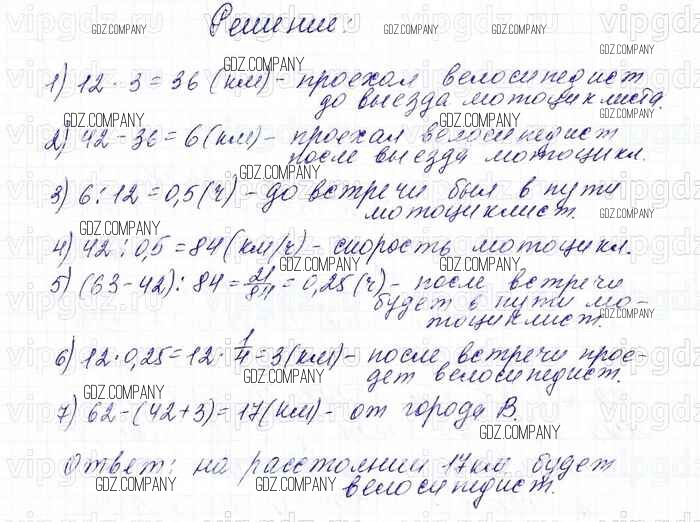 Решение:
1) 12 · 3 = 36 (км) - проехал велосипедист
до выезда мотоциклиста.
2) 42 - 36 = 6 (км) - проехал велосипедист
после выезда мотоцикл.
3) 6 : 12 = 0,5 (ч) - до встречи был в пути
мотоциклист.
4) 42 : 0,5 = 84 (км/ч) - скорость мотоцикл.
5) (63 - 42) : 84 = 21/84 = 0,25 (ч) - после встречи
будет в пути мо-
тоциклист.
6) 12 · 0,25 = 12 · 1/4 = 3 (км) - после встречи прое-
дет велосипедист.
7) 62 - (42 + 3) = 17 (км) - от города В.
Ответ: на расстоянии 17 км будет
велосипедист.